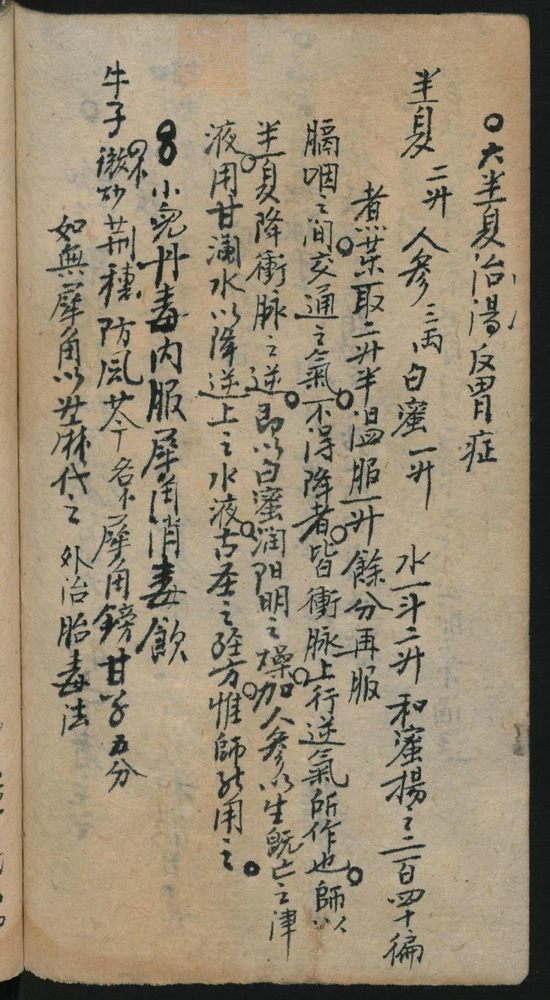 大半夏治湯反胃症
半夏 二升 人參 三両 白蜜 一升 水一斗二升 和蜜揚之二百四十徧
煮藥取二升半溫服一升 餘分再服
膈咽之間交通之氣不得降者皆衝脉上行逆氣所作也師以
半夏降衝脉之逆即以白蜜潤陽明之燥加人參以生旣亡之津
液用甘瀾水以降逆上之水液古圣之経方惟師能用之
小兒丹毒內服犀角消毒飲
牛子 微炒 荆穗 防風 芩 犀角鎊 甘草五分
如無犀角以升麻代之 外治胎毒法